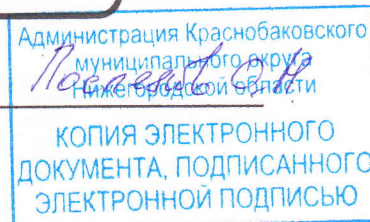 Администрация Краснобаковского
муниципального округа
Нижегородской области
КОПИЯ ЭЛЕКТРОННОГО
ДОКУМЕНТА, ПОДПИСАННОГО
ЭЛЕКТРОННОЙ ПОДПИСЬЮ